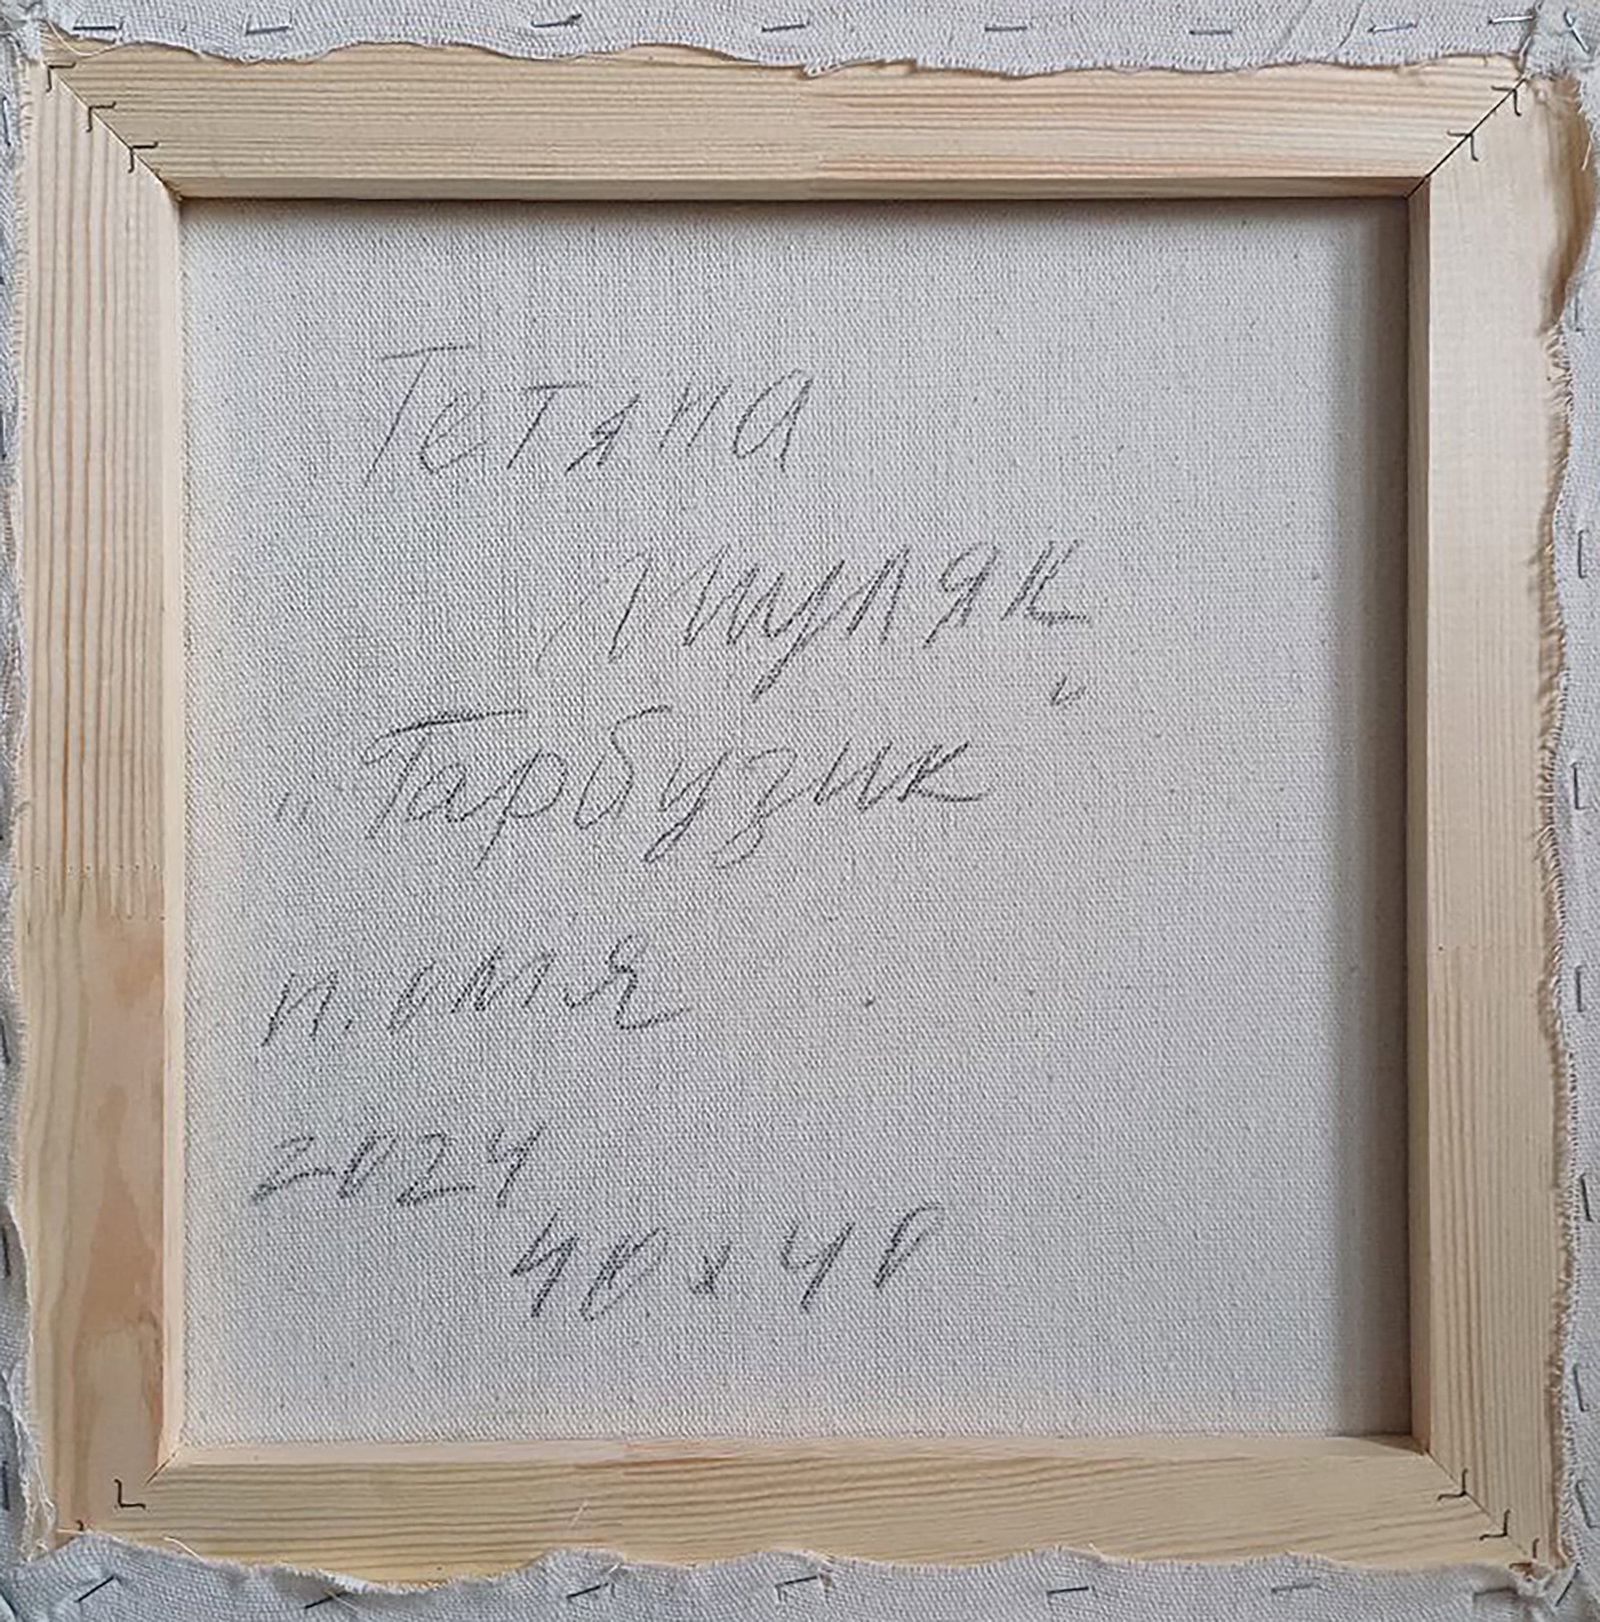 Тетяна
"Гарбузик"
п. олія
2024
40 x 40